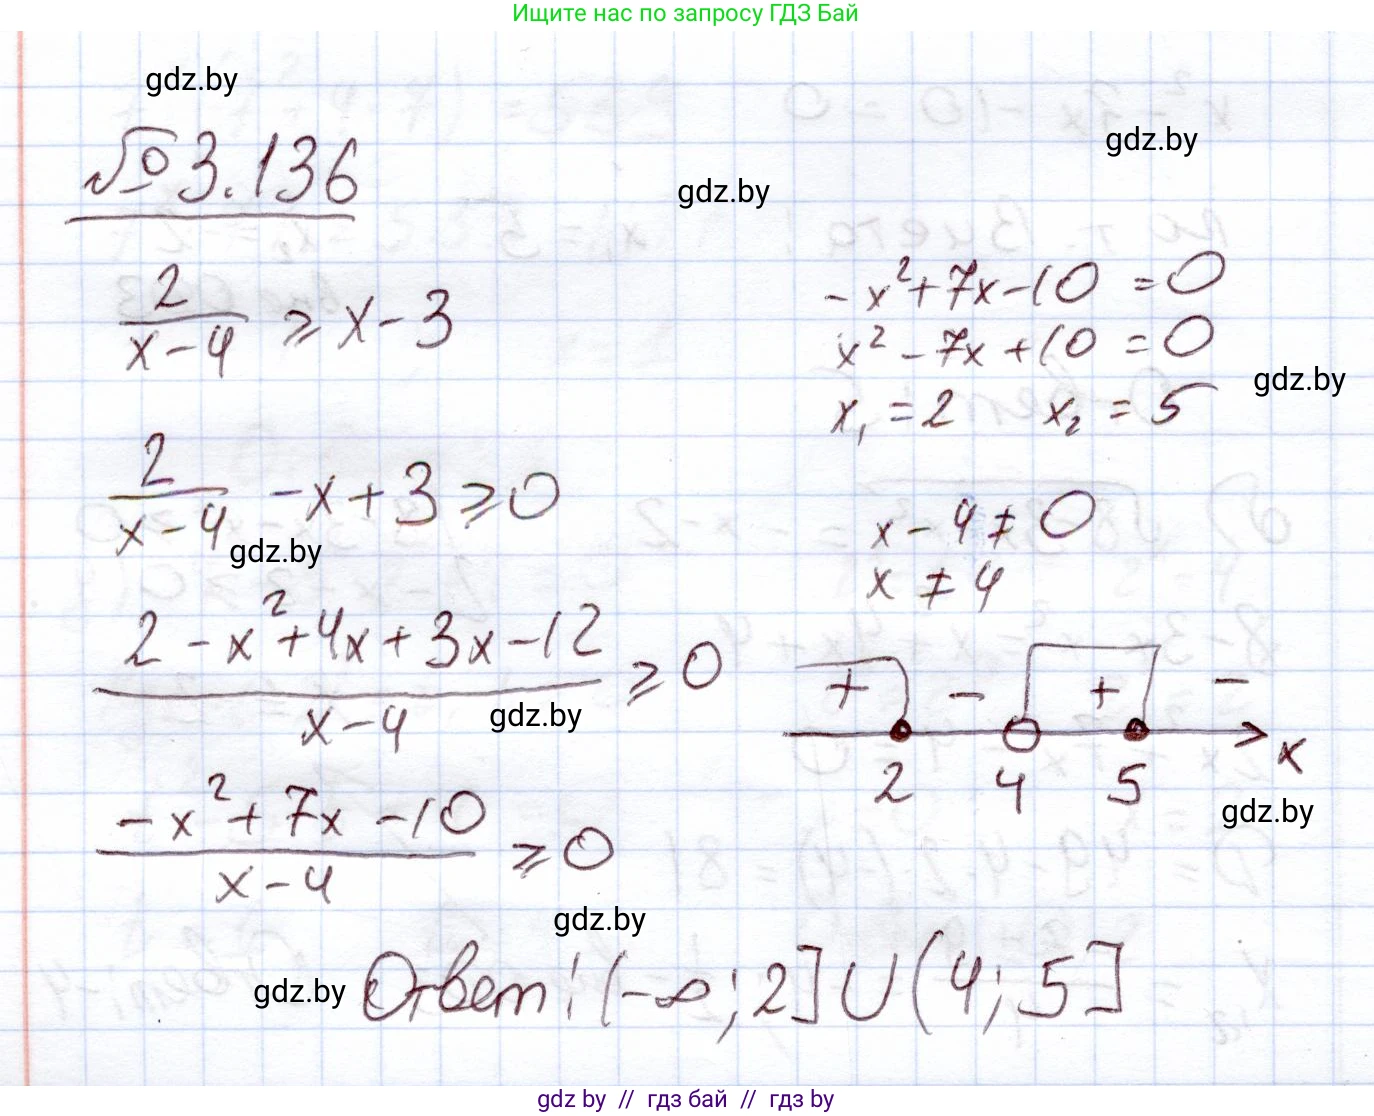 Ищите нас по запросу ГДЗ Бай
gdz.by
gdz.by
gdz.by
№ 3.136
2/(x-4) ⩾ x-3
2/(x-4) -x+3 ⩾ 0
gdz.by
(2-x²+4x+3x-12)/(x-4) ⩾ 0
gdz.by
(-x²+7x-10)/(x-4) ⩾ 0
-x²+7x-10 = 0
x²-7x+10 = 0
gdz.by
x₁ = 2 x₂ = 5
x-4 ≠ 0
x ≠ 4
+ - + -
2 4 5 x
gdz.by
gdz.by
gdz.by
Ответ: (-∞; 2] ∪ (4; 5]
gdz by // гдз бай // гдз by